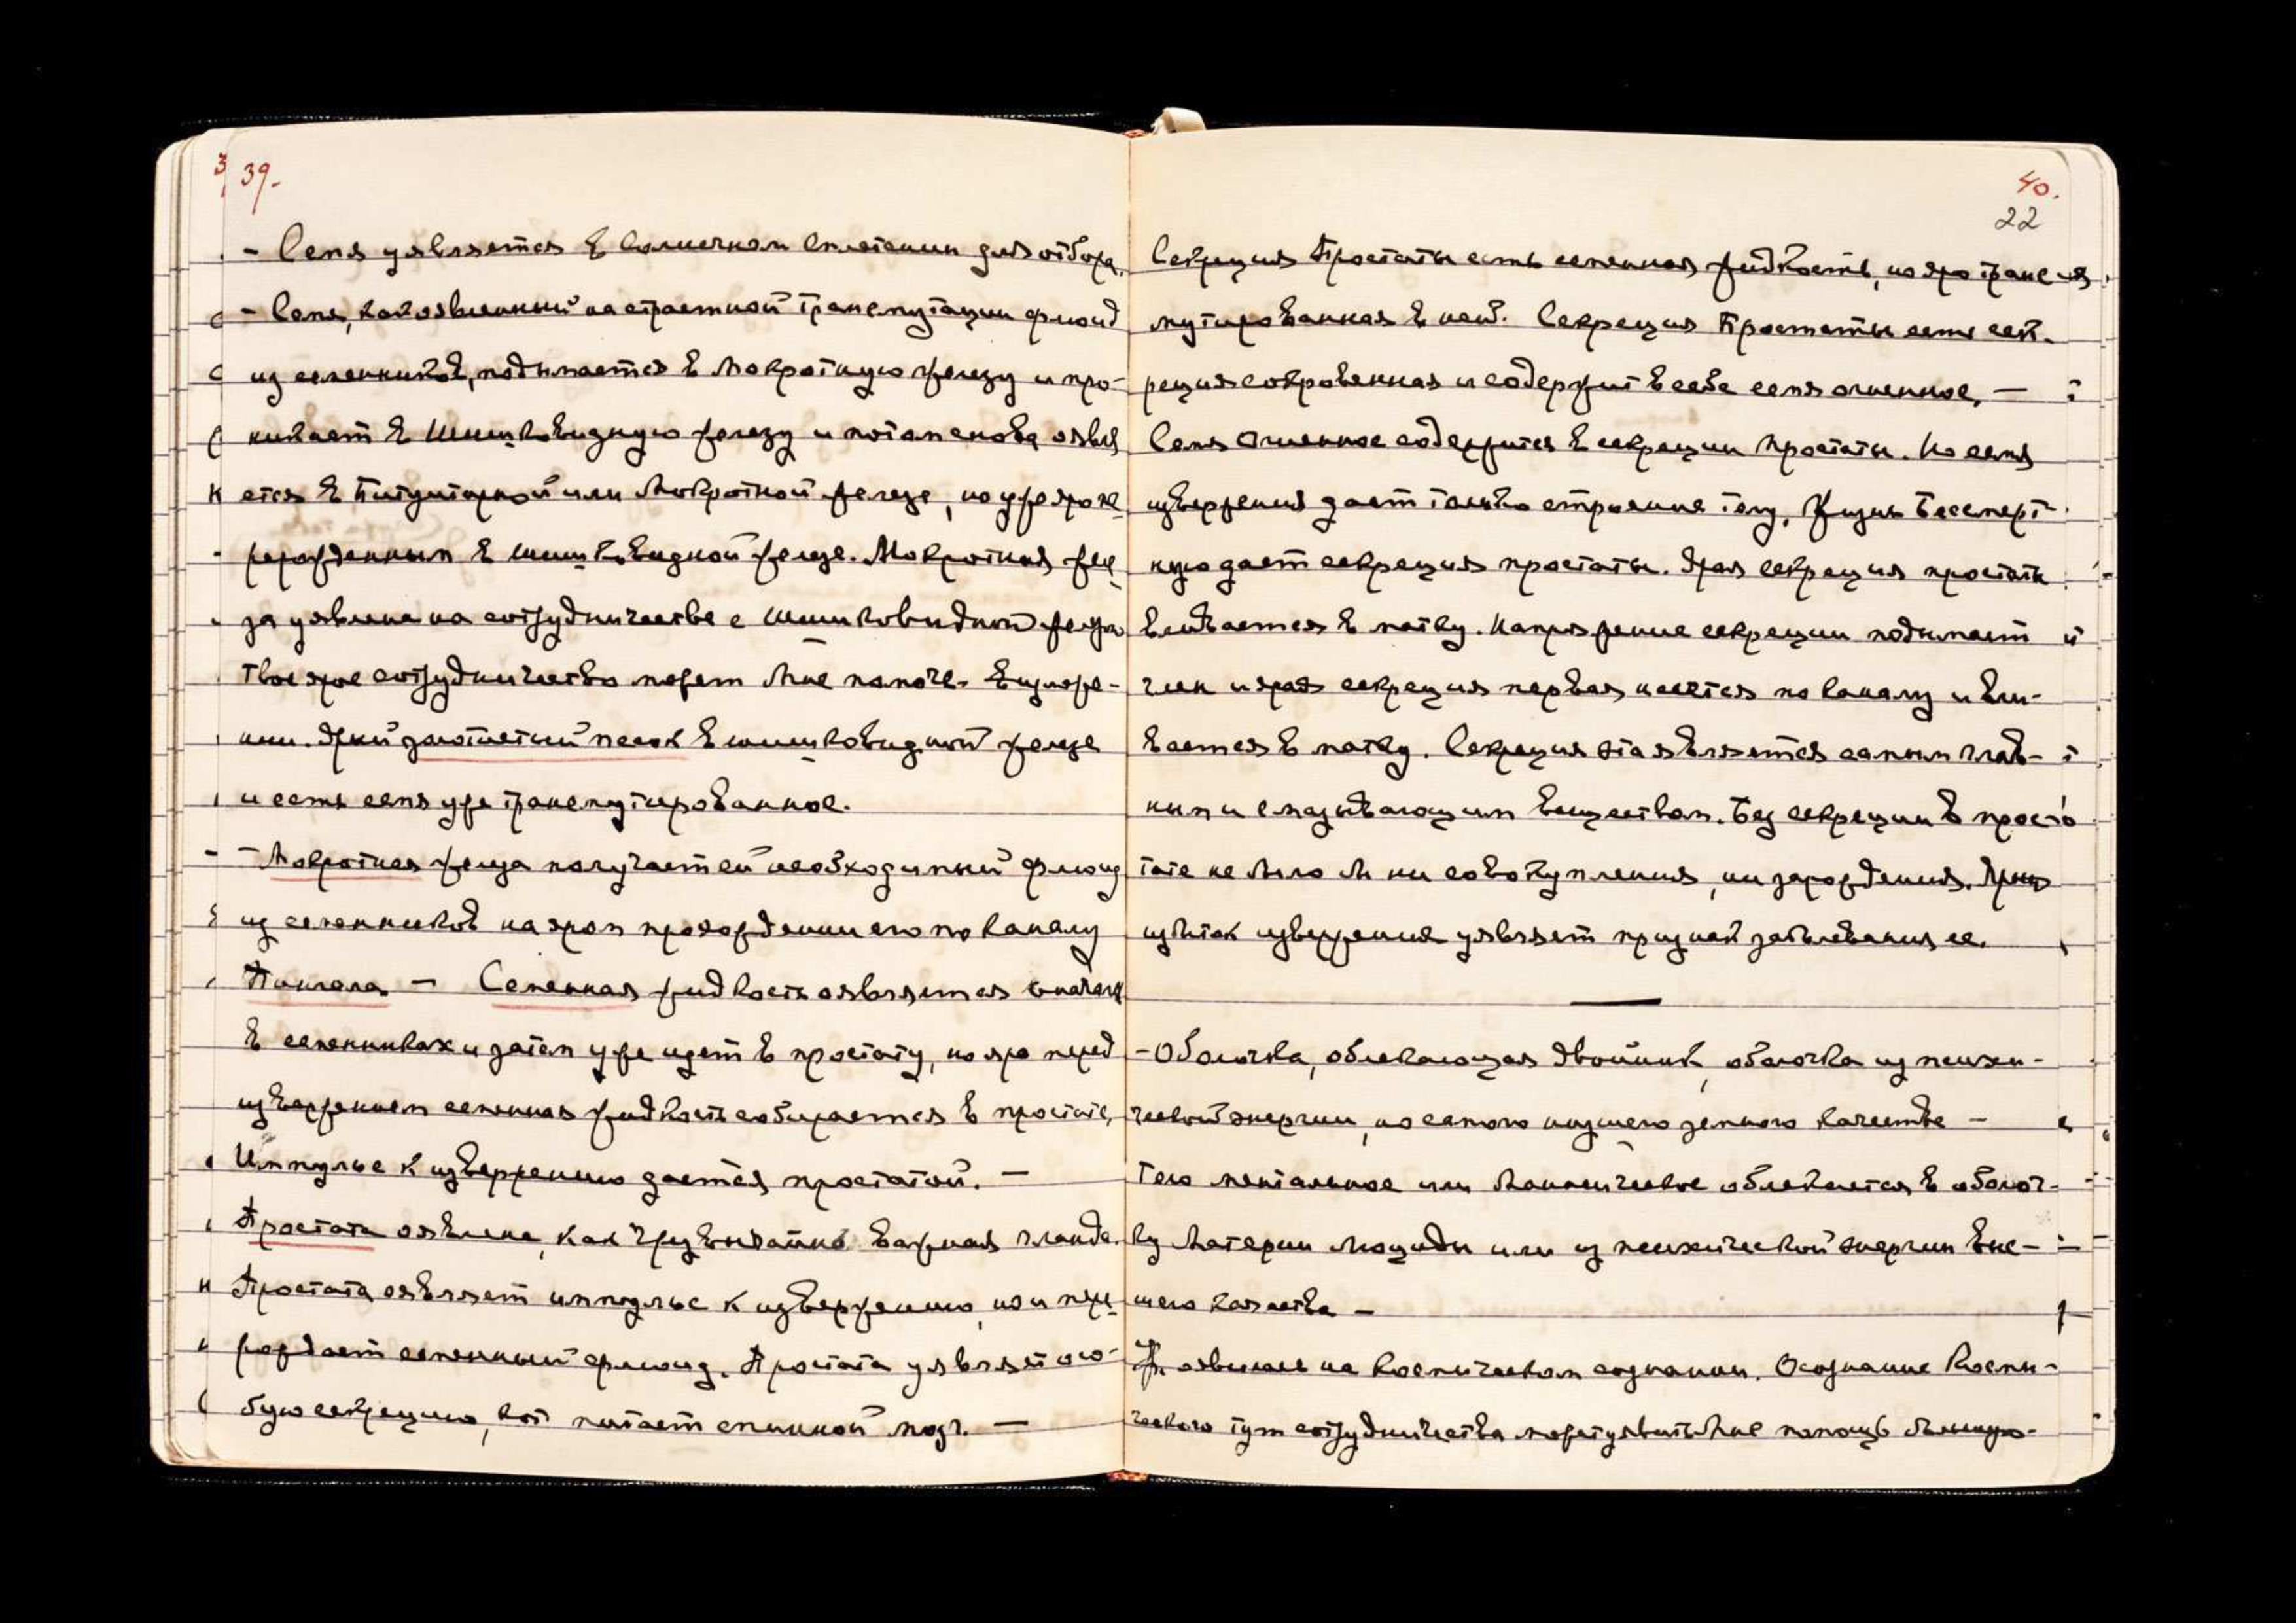 39.
- Семя уявляется в Солнечном Сплетении для отбора.
- Семя, как оявленный на страстной трансмутации флюид
из семенников, подымается в Мокротную железу и про-
никает в Шишковидную железу и потом снова оявля
ется в Питуитарной или Мокротной железе, но уже яро пе-
рерожденным в шишковидной железе. Мокротная желе-
за уявлена на сотрудничестве с Шишковидной железой
Твое ярое сотрудничество может Мне помочь в изложе-
нии. Ярый золотистый песок в шишковидной железе
и есть семя уже трансмутированное.
- Мокротная железа получает ей необходимый флюид
из семенников на яром прохождении его по каналу
Пингала - Семенная жидкость оявляется вначале
в семенниках и затем уже идет в простату, но яро перед
извержением семенная жидкость собирается в простате,
Импульс к извержению дается простатой. -
Простата оявлена, как чрезвычайно важная гланда.
Простата оявляет импульс к извержению, но и пере-
рождает семенный флюид. Простата уявляет осо-
бую секрецию, кот питает спинной мозг. -
40.
22
Секреция Простаты есть семенная жидкость, но яро транс-
мутированная в ней. Секреция Простаты есть сек-
реция сокровенная и содержит в себе семя огненное, -
Семя Огненное содержится в секреции простаты. Но семя
извержения дает только строение телу, Жизнь Бессмерт-
ную дает секреция простаты. Ярая секреция простаты
вливается в матку. Напряжение секреции подымает
член и ярая секреция первая несется по каналу и вли-
вается в матку. Секреция эта является самым глав-
ным и смазывающим веществом. Без секреции в прос-
тате не было бы ни совокупления, ни зарождения. Ярый
избыток извержения уявляет признак заболевания ее.
- Оболочка, облекающая двойник, оболочка из психи-
ческой энергии, но самого низшего земного качества -
Тело ментальное или Манасическое облекается в оболоч-
ку Материи Люциды или из психической энергии выс-
шего качества -
Я оявилась на Космическом сознании. Осознание Косми-
ческого тут сотрудничества может уявить Мне помощь